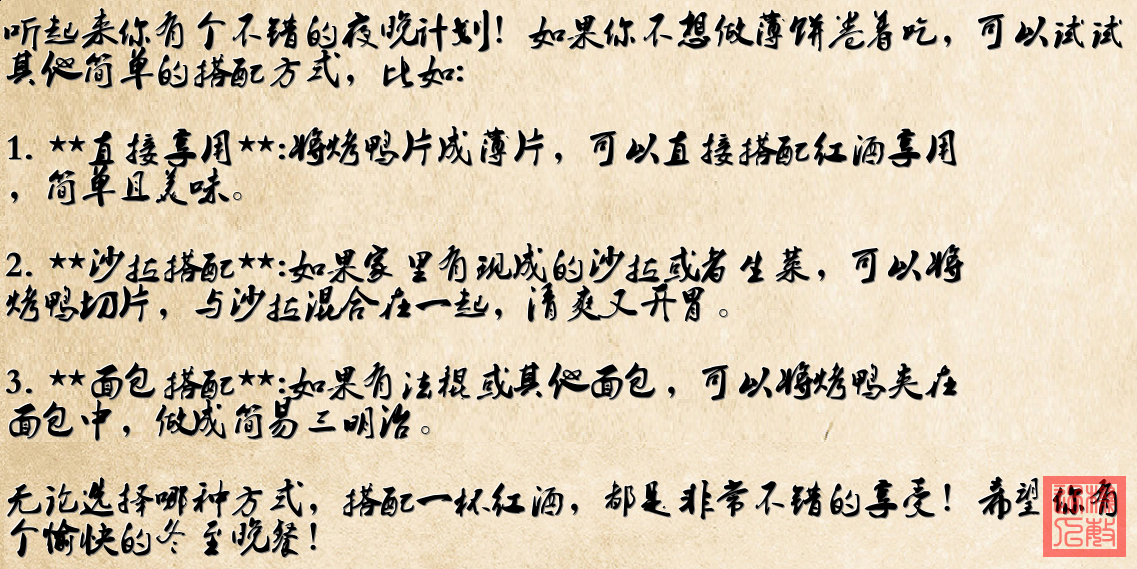 听起来你有个不错的夜晚计划！如果你不想做薄饼卷着吃，可以试试
其他简单的搭配方式，比如:
1. **直接享用**:将烤鸭片成薄片，可以直接搭配红酒享用
，简单且美味。
2. **沙拉搭配**:如果家里有现成的沙拉或者生菜，可以将
烤鸭切片，与沙拉混合在一起，清爽又开胃。
3. **面包搭配**:如果有法棍或其他面包，可以将烤鸭夹在
面包中，做成简易三明治。
无论选择哪种方式，搭配一杯红酒，都是非常不错的享受！希望你有
个愉快的冬至晚餐！